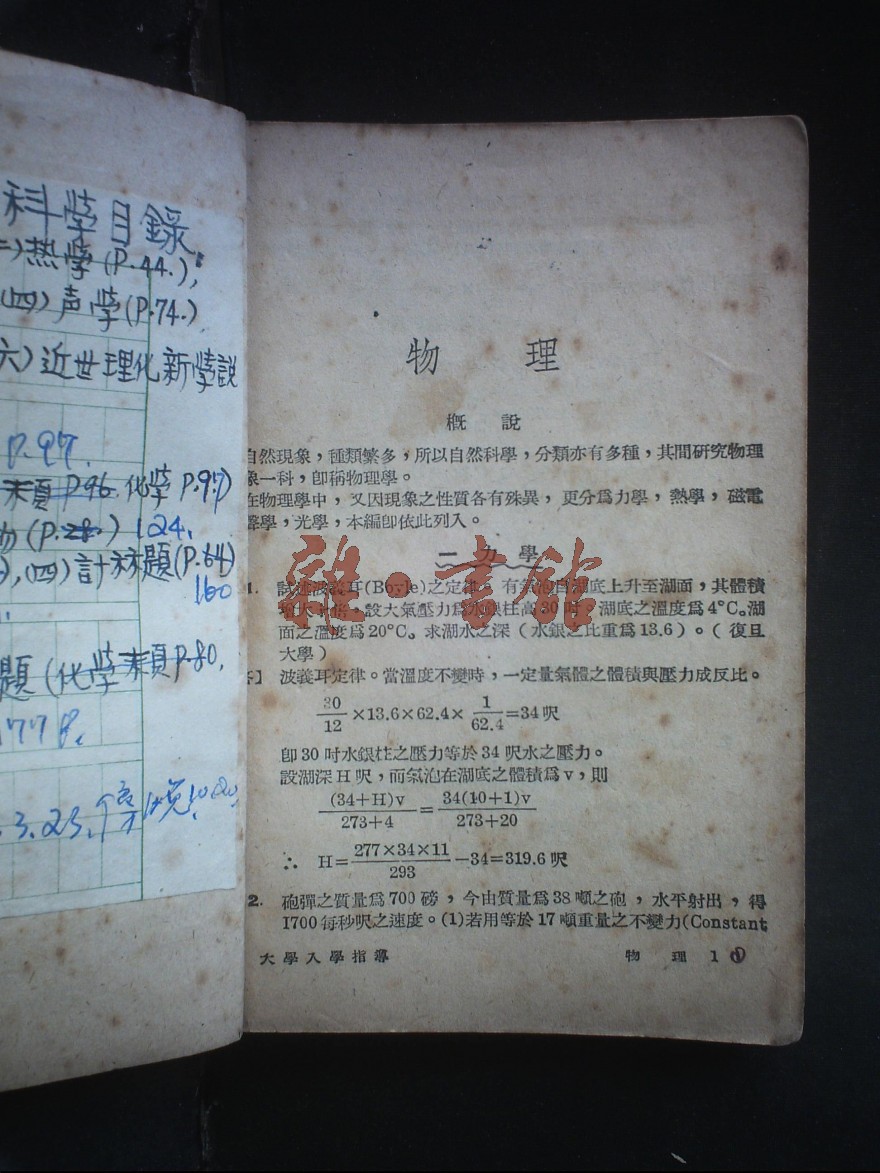 科学目錄
二)熱学(P.44.),
(四)声学(P.74.)
六)近世理化新学説
P.97.
末頁P.96.化学P.97)
(P.28.)124.
),(四)計祘題(P.64)
160
題(化学末頁P.80,
177
3.23.
物 理
概 說
自然現象,種類繁多,所以自然科學,分類亦有多種,其間研究物理
象一科,卽稱物理學。
在物理學中,又因現象之性質各有殊異,更分爲力學,熱學,磁電
聲學,光學,本編卽依此列入。
一 力 學
雜·書館
1. 試述波義耳(Boyle)之定律。有氣泡自湖底上升至湖面,其體積
增大十倍,設大氣壓力爲水銀柱高30吋。湖底之溫度爲4°C。湖
面之溫度爲20°C。求湖水之深(水銀之比重爲13.6)。(復旦
大學)
答】 波義耳定律。當溫度不變時,一定量氣體之體積與壓力成反比。
30/12 ×13.6×62.4× 1/62.4 =34呎
卽30吋水銀柱之壓力等於34呎水之壓力。
設湖深H呎,而氣泡在湖底之體積爲v,則
(34+H)v/273+4 = 34(10+1)v/273+20
∴ H= 277×34×11/293 −34=319.6呎
2. 砲彈之質量爲700磅,今由質量爲38噸之砲,水平射出,得
1700每秒呎之速度。(1)若用等於17噸重量之不變力(Constant
大學入學指導 物 理 1 ①